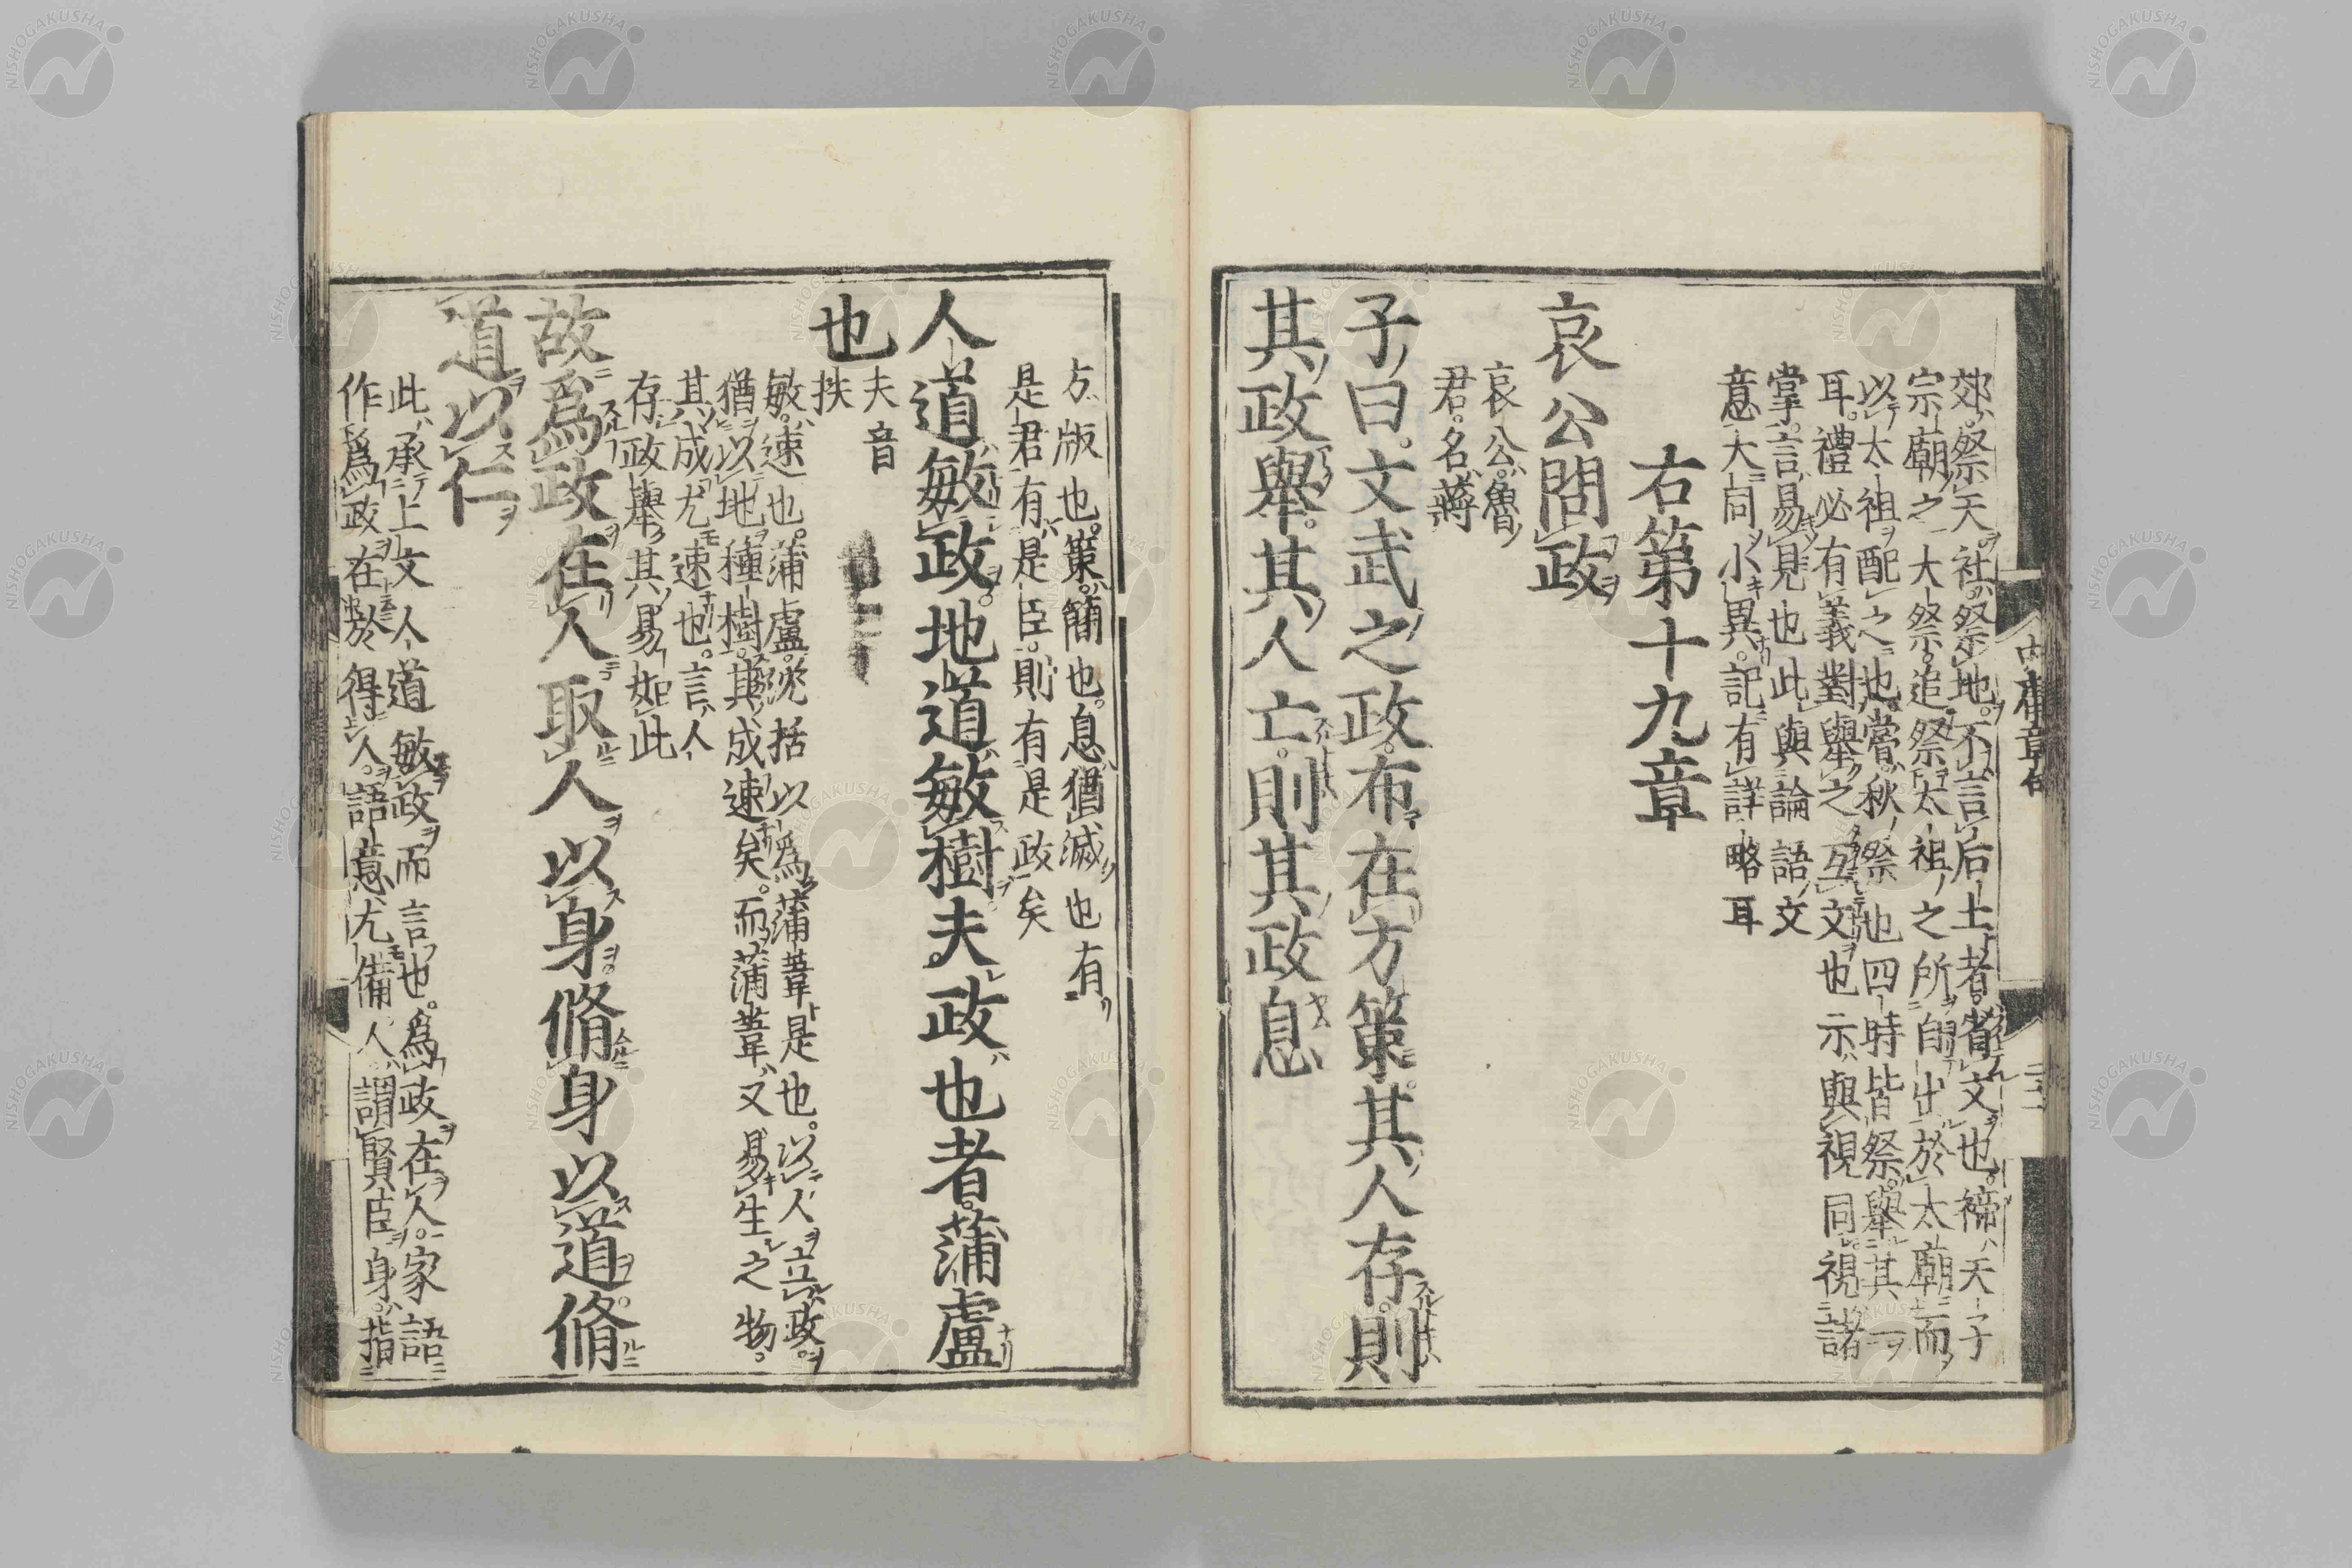 郊祭天社祭地不言后土者省文也禘天子
宗廟之大祭追祭太祖之所自出於太廟而
以太祖配之也嘗秋祭也四時皆祭舉其一
耳禮必有義對舉之互文也示與視同視諸
掌言易見也此與論語文
意大同小異記有詳略耳
右第十九章
哀公問政
哀公魯
君名蔣
子曰文武之政布在方策其人存則
其政舉其人亡則其政息
方版也策簡也息猶滅也有
是君有是臣則有是政矣
人道敏政地道敏樹夫政也者蒲盧
也
夫音
扶
敏速也蒲盧沈括以為蒲葦是也以人立政
猶以地種樹其成速矣而蒲葦又易生之物
其成尤速也言人
存政舉其易如此
故爲政在人取人以身脩身以道脩
道以仁
此承上文人道敏政而言也爲政在人家語
作爲政在於得人語意尤備人謂賢臣身指
中庸章句
NISHOGAKUSHA